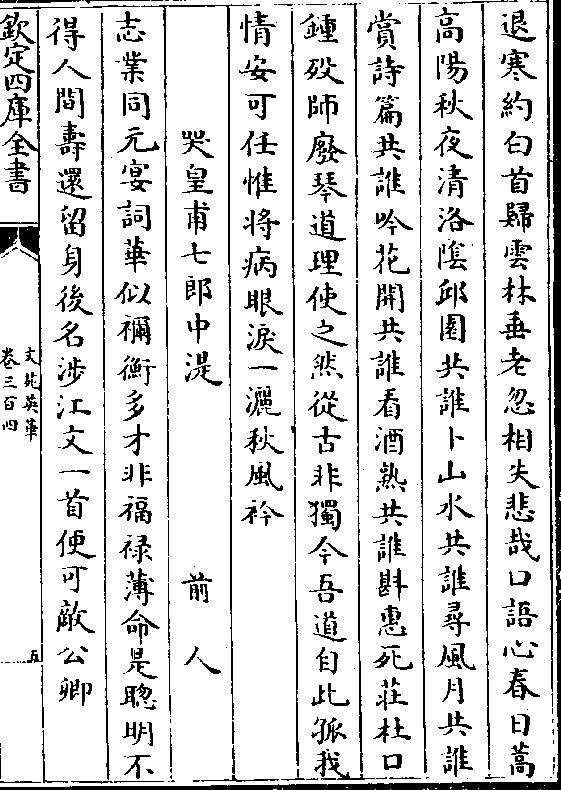 退寒約白首歸雲林垂老忽相失悲哉口語心春日蒿
高陽秋夜清洛隂邱園共誰卜山水共誰尋風月共誰
賞詩篇共誰吟花開共誰看酒熟共誰斟惠死莊杜口
鍾殁師廢琴道理使之然從古非獨今吾道自此孤我
情安可任惟将病眼淚一灑秋風衿
哭皇甫七郎中湜 前人
志業同元宴詞華似禰衡多才非福禄薄命是聰明不
得人間壽還留身後名涉江文一首便可敵公卿
欽定四庫全書
文苑英華
卷三百四
五